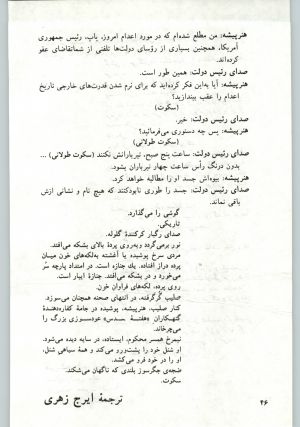 هنرپیشه: من مطلع شده‌ام که در مورد اعدام امروز، پاپ، رئیس جمهوری
آمریکا، همچنین بسیاری از رؤسای دولت‌ها تلفنی از شماتقاضای عفو
کرده‌اند.
صدای رئیس دولت: همین طور است.
هنرپیشه: آیا به‌این فکر کرده‌اید که برای نرم شدن قدرت‌های خارجی تاریخ
اعدام را عقب بیندازید؟
(سکوت)
صدای رئیس دولت: خیر.
هنرپیشه: پس چه دستوری می‌فرمائید؟
(سکوت طولانی)
صدای رئیس دولت: ساعت پنج صبح، تیربارانش نکنند (سکوت طولانی) ...
بدون درنگ رأس ساعت چهار تیرباران بشود.
هنرپیشه: بیوه‌اش جسد او را مطالبه خواهد کرد.
صدای رئیس دولت: جسد را طوری نابودکنند که هیچ نام و نشانی ازش
باقی نماند.
گوشی را می‌گذارد.
تاریکی.
صدای رگبار کرکنندهٔ گلوله.
نور برمی‌گردد و به‌روی پردهٔ بالای بشکه می‌افتد.
مردی سرخ پوشیده یا آغشته به‌لکه‌های خون میان
پرده دراز افتاده. یک جنازه است. در امتداد پارچه سر
می‌خورد و در بشکه می‌افتد. جنازهٔ ایبار است.
روی پرده، لکه‌های فراوان خون.
صلیب گُرگرفته، در انتهای صحنه همچنان می‌سوزد.
کنار صلیب، هنرپیشه، پوشیده در جامهٔ کفاره‌دهندهٔ
گنهکاران «هفتــهٔ مقــدس» عودسوزی بزرگ را
می‌چرخاند.
نیمرخ همسر محکوم، ایستاده، در سایه دیده می‌شود.
او شنل خود را پشت‌ورو می‌کند و همهٔ سیاهی شنل،
او را در خود فرو می‌کشد.
ضجه‌ی جگرسوز بلندی که ناگهان می‌شکند.
سکوت.
ترجمهٔ ایرج زهری
۴۶